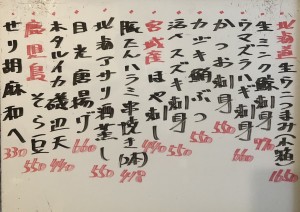 北海道生ウニつまみ木箱 1650
生ミンク鯨刺身 970
ウマズラハギ刺身 660
かつお刺身 550
カジキ鯛ぶつ 550
活〆スズキ刺身 550
宮城産ほや刺し 440
豚たんハラミ串焼き(2本) 418
北海アサリ酒蒸し 550
目光唐揚げ 660
ホタルイカ磯辺天 440
鹿児島そら豆 550
せり胡麻和へ 330